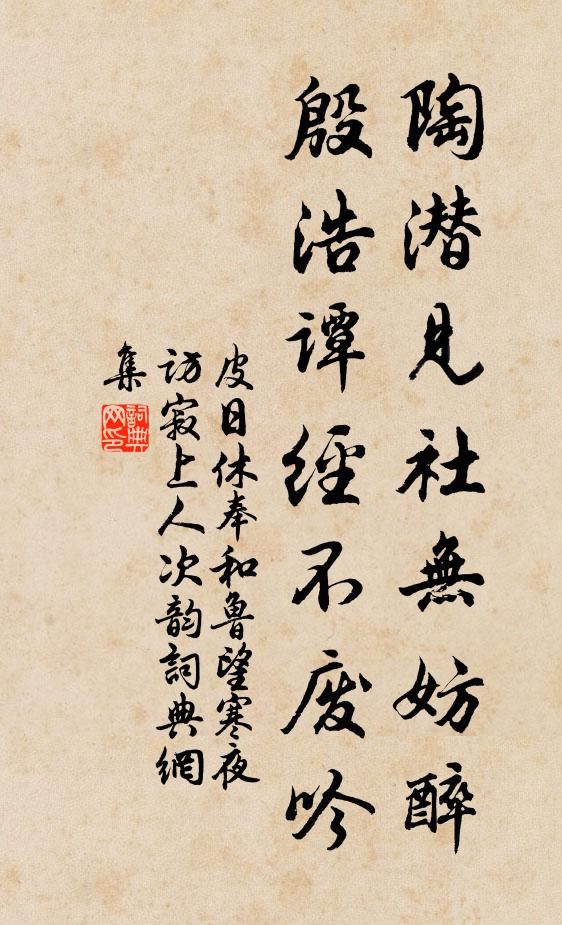 陶潜見社無妨醉
殷浩譚經不廢吟
皮日休奉和魯望寒夜
訪寂上人次韵詞典網
集
詞典
网印